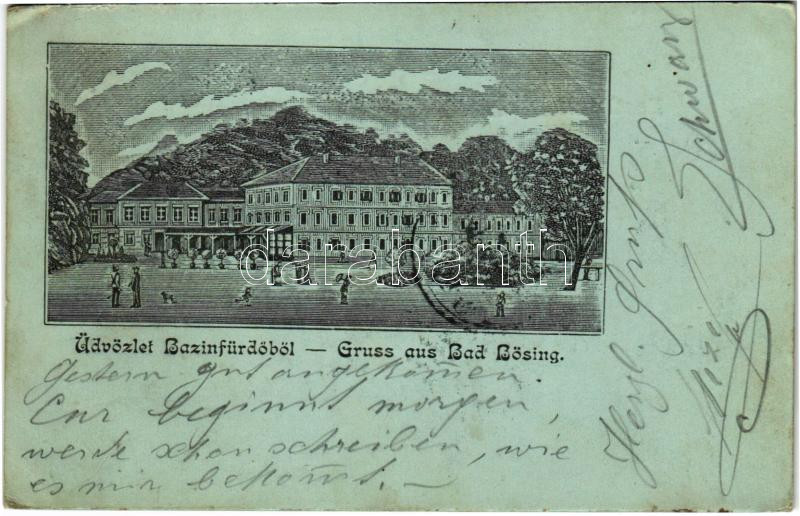 Üdvözlet Bazinfürdőből — Gruss aus Bad Bösing.
Gestern gut angekom̄en.
Cur beginnt morgen,
werde schon schreiben, wie
es mir bekom̄t. —
Herzl. Gruß
Schwarz
darabanth